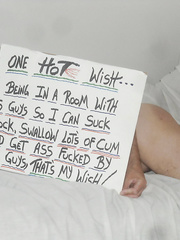 ONE HOT WISH...
BEING IN A ROOM WITH
S GUYS SO I CAN SUCK
OCK, SWALLOW LOTS OF CUM
D GET ASS FUCKED BY
GUYS THAT'S MY WISH!